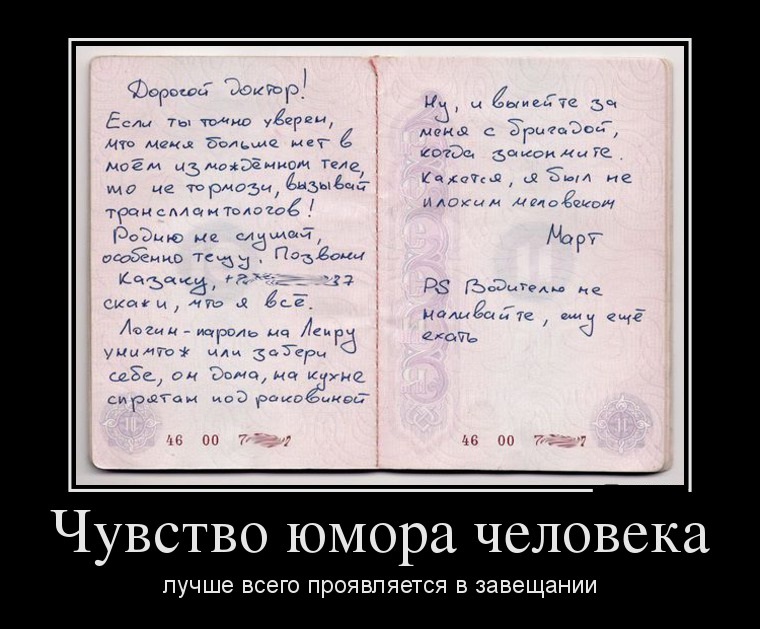 Дорогой доктор!
Если ты точно уверен,
что меня больше нет в
моём измождённом теле,
то не тормози, вызывай
трансплантологов!
Родню не слушай,
особенно тещу. Позвони
Казаку, +7 37
скажи, что я всё.
Логин-пароль на Лепру
уничтож или забери
себе, он дома, на кухне
спрятан под раковиной
46 00 7 7
Ну, и выпейте за
меня с бригадой,
когда закончите.
Кажется, я был не
плохим человеком
Март
PS Водителю не
наливайте, ему ещё
ехать
46 00 7 7
Чувство юмора человека
лучше всего проявляется в завещании